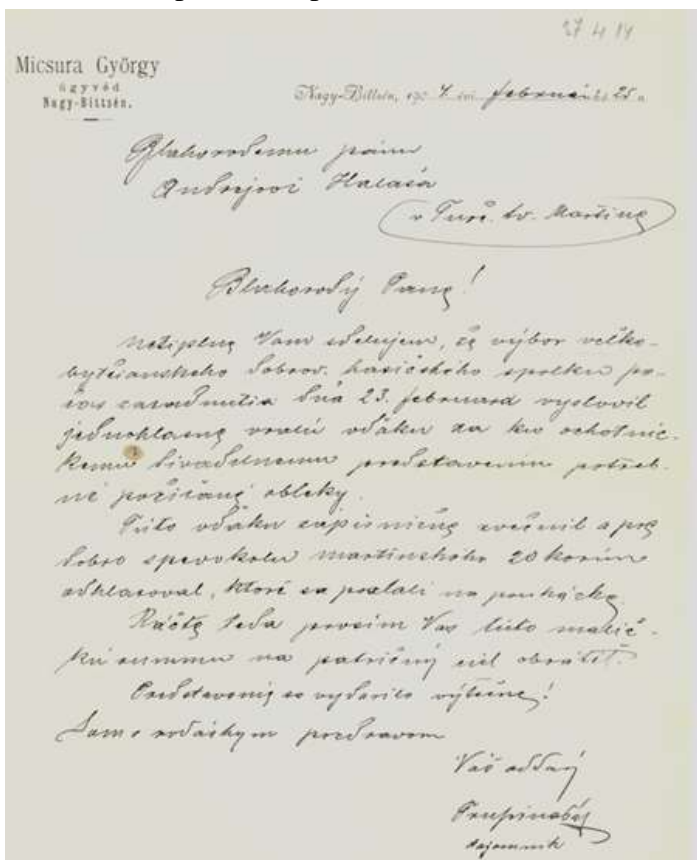 27 4 14
Micsura György
ügyvéd
Nagy-Bittsén.
Nagy-Bittsén, 190 4. évi február hó 25. n
Blahorodému pánu
Andrejovi Halaša
v Turč. Sv. Martine
Blahorodý Pane!
Vám sdelujem, že výbor veľko-
bytčianskeho dobrov. hasičského spolku po-
čas zasadnutia dňa 23. februara vyslovil
jednohlasne vrelú vďaku za ku ochotníc-
kemu divadelnému predstaveniu potreb-
né požičané obleky.
Túto vďaku zápisnične zvečnil a pre
dobro spevokolu martinského 20 korún
odhlasoval, ktoré sa poslali na poukážke.
Ráčte teda prosím Vás túto malič-
kú summu na patričný cieľ obrátiť.
Predstavenie sa vydarilo výtečne!
rodáckym pozdravom
Váš oddaný
tajomník